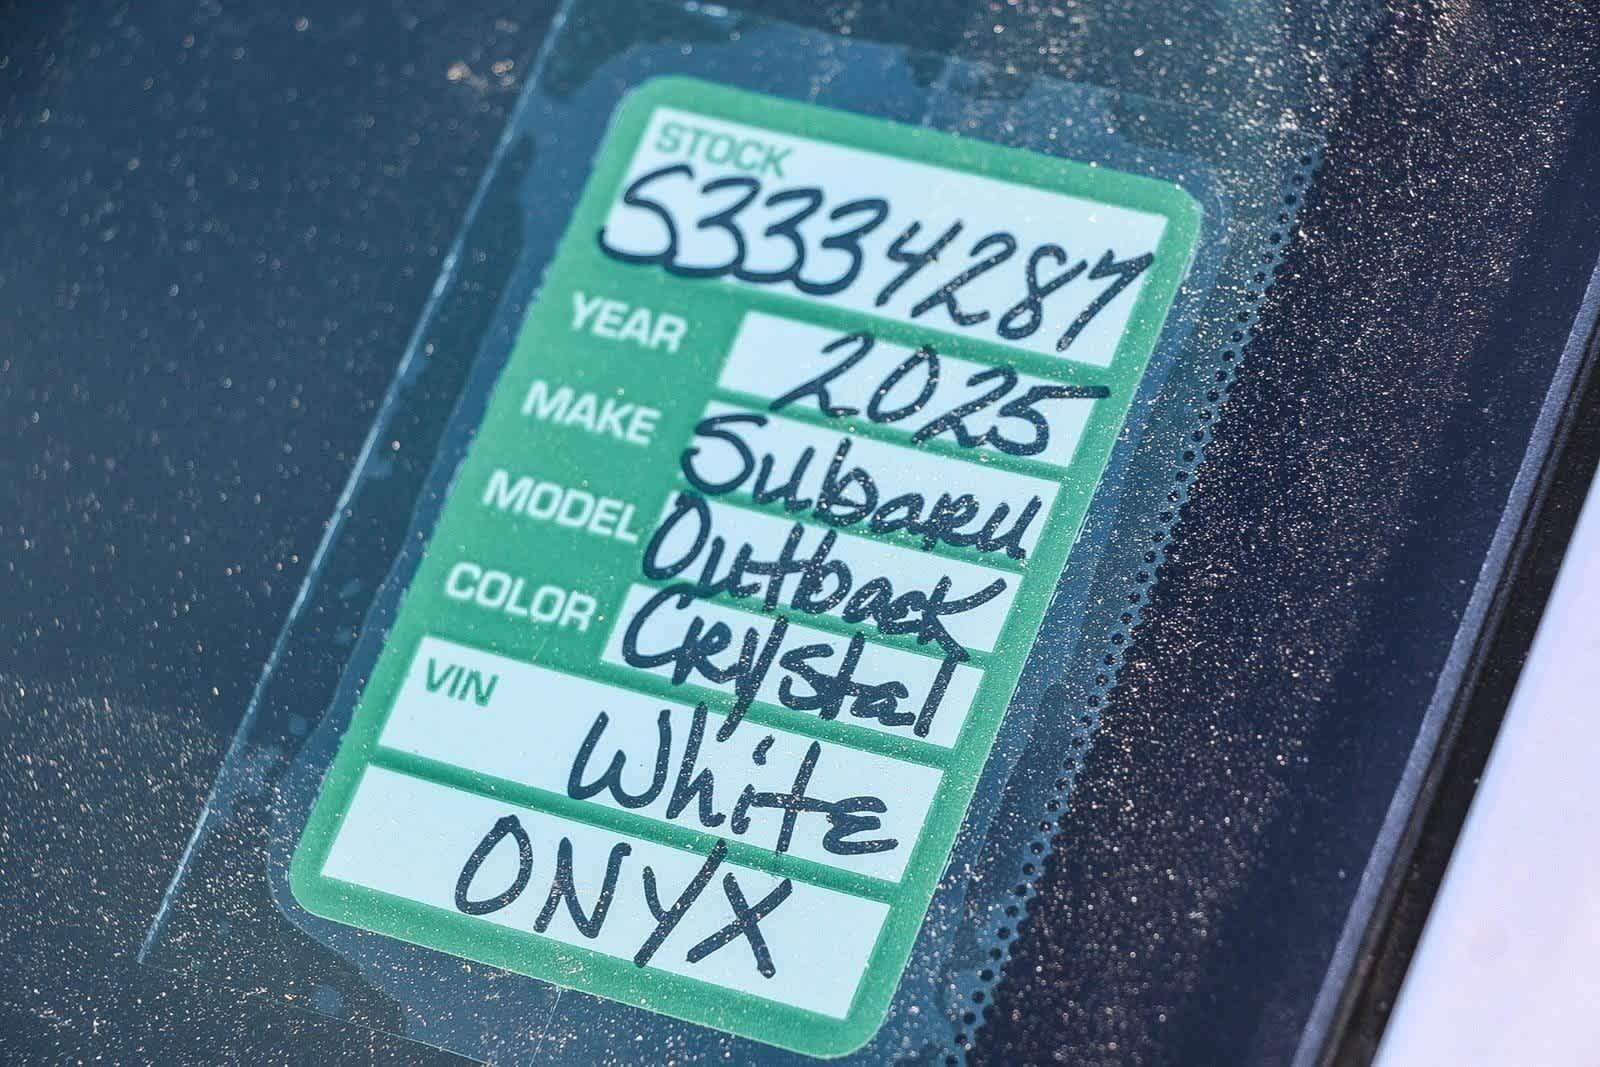 STOCK
S3334287
YEAR 2025
MAKE Subaru
MODEL Outback
COLOR Crystal
VIN
White
ONYX